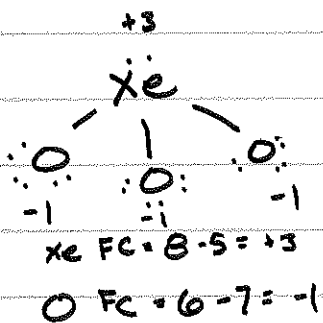 +3
Xe
O O O
-1 -1 -1
Xe FC = 8-5 = +3
O FC = 6-7 = -1